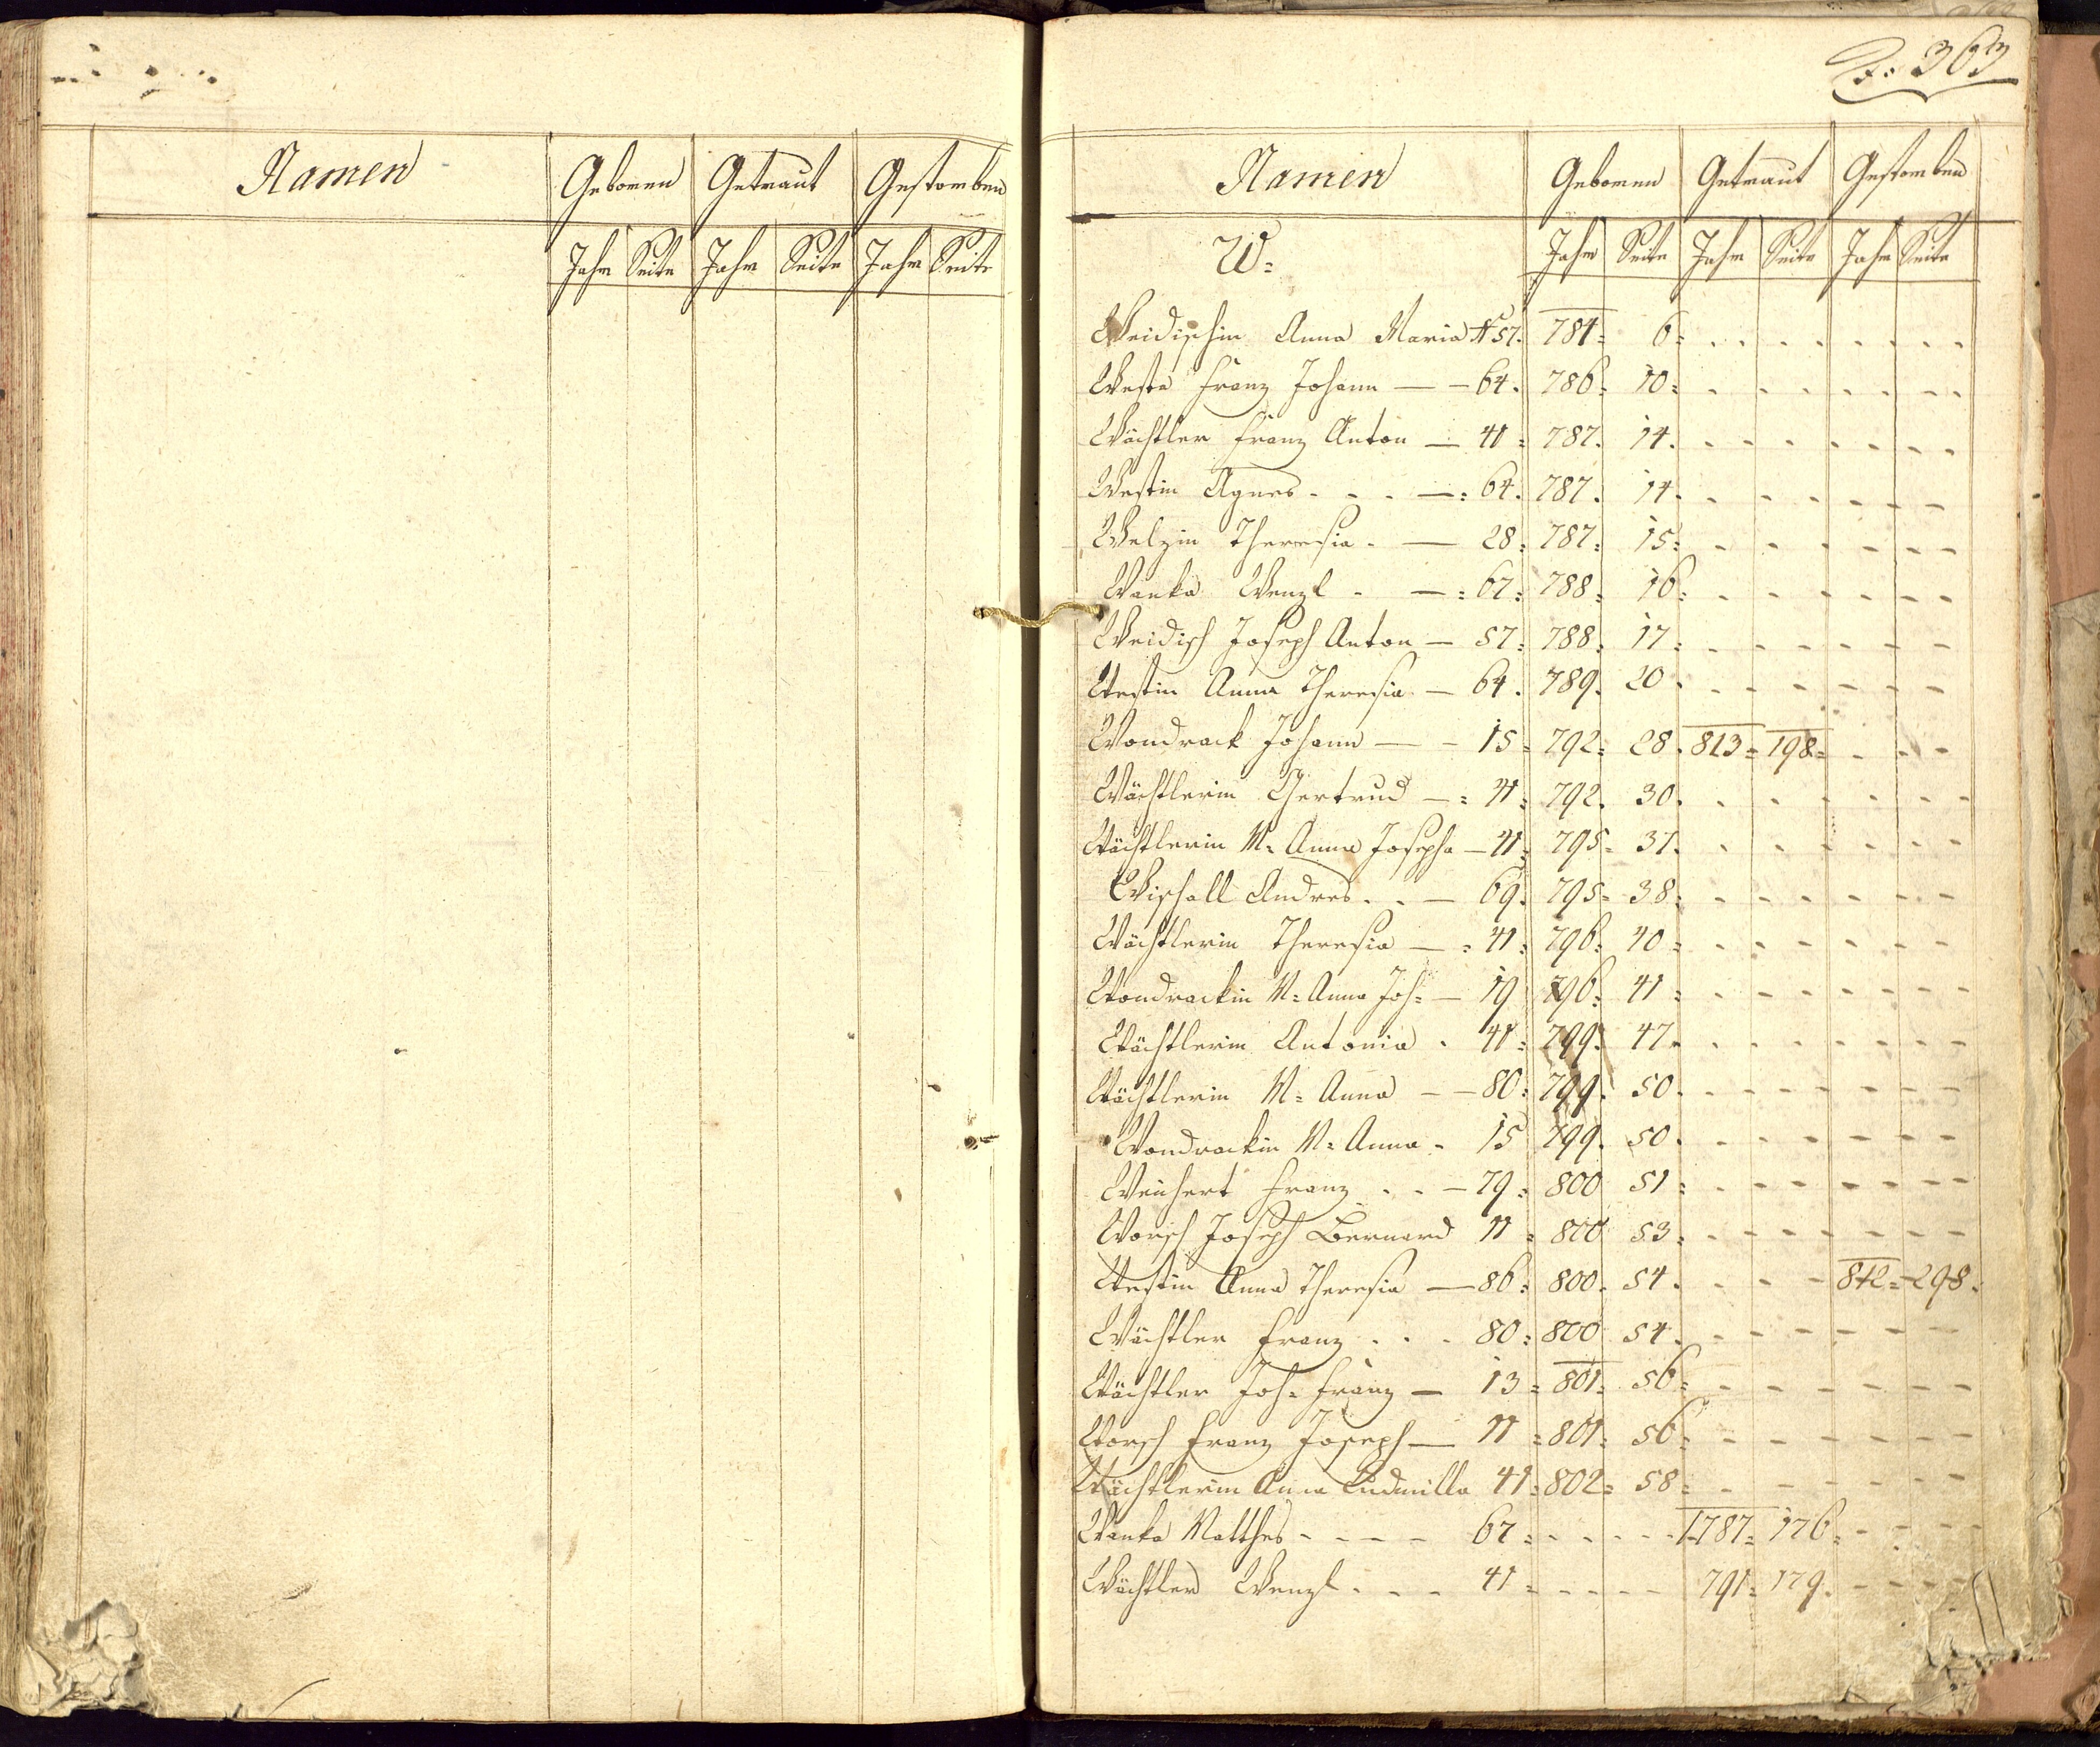 Namen Geboren Getraut Gestorben
Jahr Seite Jahr Seite Jahr Seite
F: 363
Namen Geboren Getraut Gestorben
W: Jahr Seite Jahr Seite Jahr Seite
Weidischin Anna Maria N 57. 784= 6=
Weste Franz Johann — 64. 786= 10=
Wächtler Franz Anton — 41= 787. 14.
Westin Agnes — 64. 787. 14.
Welzin Theresia — 28= 787= 15=
Wanka Wenzl — 67= 788= 16=
Weidisch Joseph Anton — 57= 788. 17=
Westin Anna Theresia — 64. 789. 20.
Wondrack Johann — 15= 792= 28. 813= 198=
Wächtlerin Gertrud — 41= 792. 30.
Wächtlerin M= Anna Josepha — 41= 795= 37.
Wischall Andres — 69. 795= 38=
Wächtlerin Theresia — 41= 796= 40=
Wondrackin M= Anna Joh= — 19 796= 41=
Wächtlerin Antonia . 41= 799. 47.
Wächtlerin M= Anna — 80= 799. 50.
Wondrackin M= Anna . 15 799. 50.
Weichert Franz — 79= 800 51=
Worsch Joseph Bernard 11= 800 53=
Westin Anna Theresia — 86= 800. 54. 842= 298.
Wächtler Franz . . . 80= 800 54.
Wächtler Joh= Franz — 13= 801= 56=
Worsch Franz Joseph — 11= 801= 56=
Wächtlerin Anna Ludmilla 41= 802= 58=
Wanka Matthes - - - - 67= 1787= 176=
Wächtler Wenzl . . . 41= 791= 179.